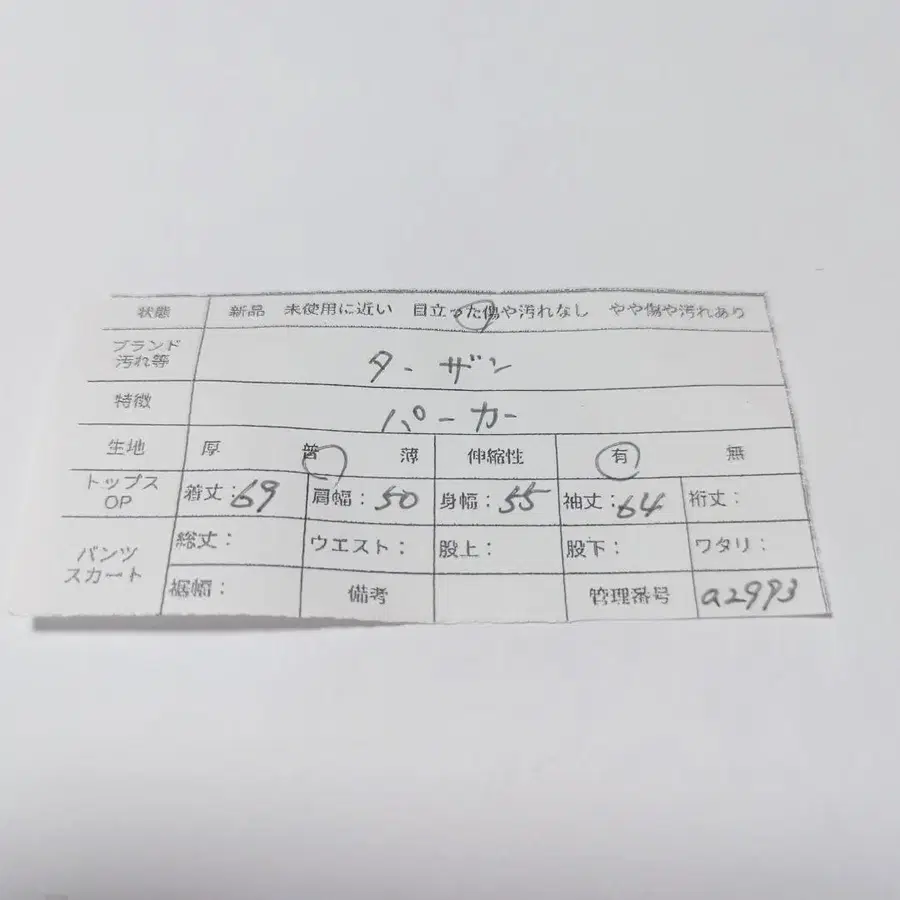 状態 新品 未使用に近い 目立った傷や汚れなし やや傷や汚れあり
ブランド
汚れ等 ターザン
特徴 パーカー
生地 厚 普 薄 伸縮性 有 無
トップス
OP 着丈:69 肩幅:50 身幅:55 袖丈:64 裄丈:
パンツ
スカート 総丈: ウエスト: 股上: 股下: ワタリ:
裾幅: 備考 管理番号 a2993